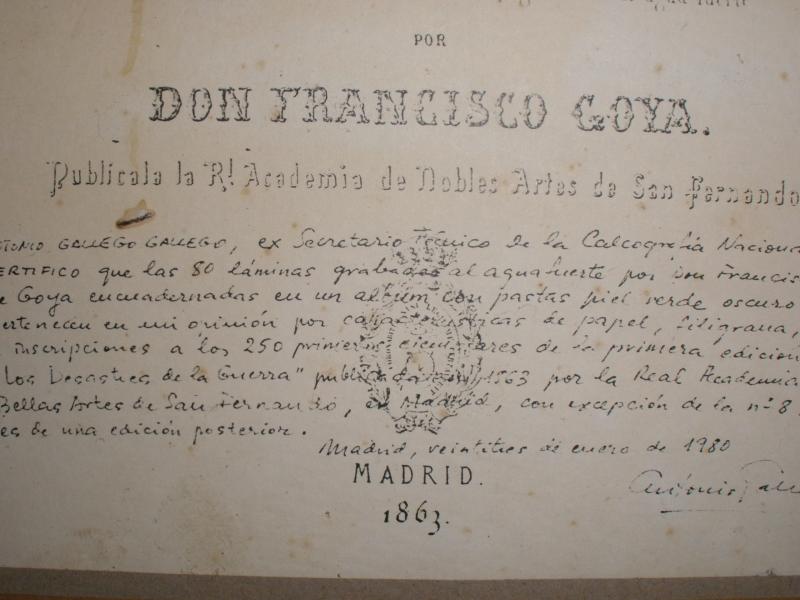 POR
DON FRANCISCO GOYA.
Publícala la Rl. Academia de Nobles Artes de San Fernando
TONIO GALLEGO GALLEGO, ex Secretario Técnico de la Calcografía Naciona
ERTIFICO que las 80 láminas grabadas al aguafuerte por Don Francis
e Goya encuadernadas en un album con pastas piel verde oscuro
ertenecen en mi opinión por características de papel, filigrana,
inscripciones a los 250 primeros ejemplares de la primera edición
Los Desastres de la Guerra" publicada en 1863 por la Real Academia
Bellas Artes de San Fernando, en Madrid, con excepción de la nº 8
es de una edición posterior.
Madrid, veintitres de enero de 1980
MADRID.
Antonio Galle
1863.